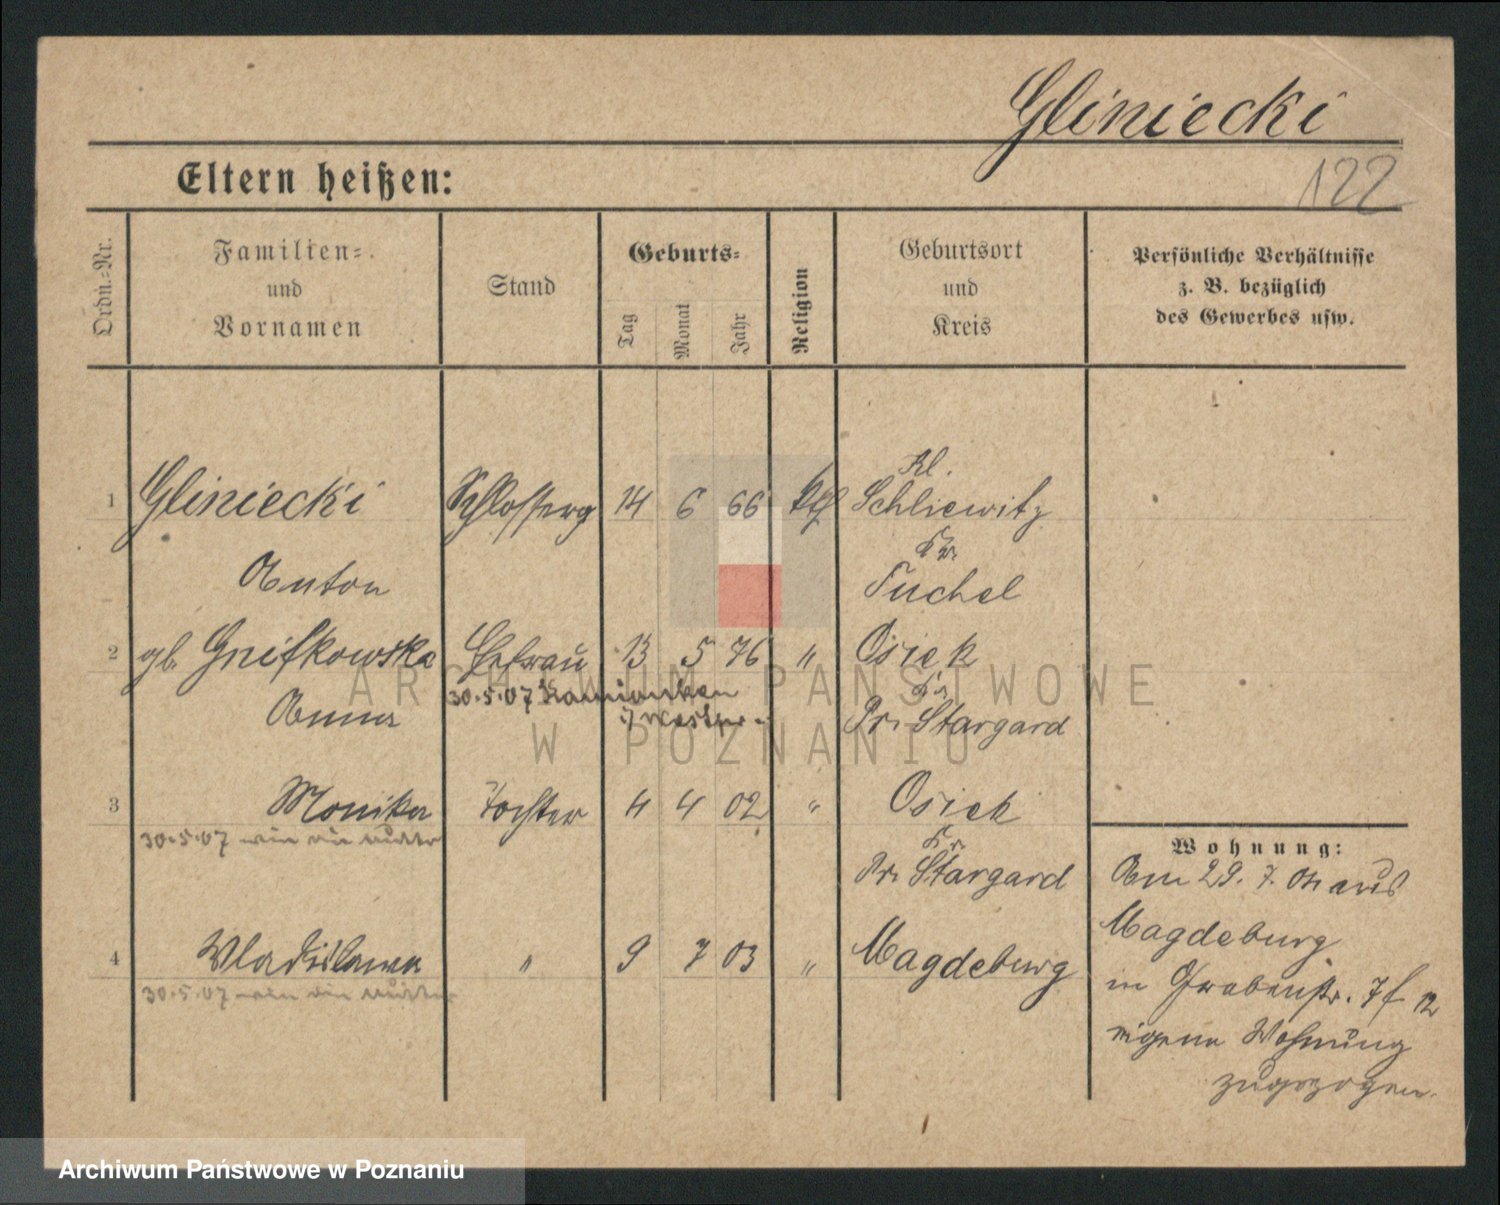 Gliniecki
122
Eltern heißen:
Ordn.-Nr.
Familien-
und
Vornamen
Stand
Geburts-
Tag
Monat
Jahr
Religion
Geburtsort
und
Kreis
Persönliche Verhältnisse
z. B. bezüglich
des Gewerbes usw.
Kl.
1 Gliniecki Schlosserg 14 6 66 kth Schliewitz
Kr.
Anton Tuchel
2 gb. Gnifkowska Ehefrau 13 5 76 " Osiek
30.5.07
Kr.
Anna Pr. Stargard
3 Monika Tochter 4 4 02 " Osiek
30.5.07 wie die Mutter
Kr.
Pr. Stargard
4 Wladislawa " 9 7 03 " Magdeburg
30.5.07 wie die Mutter
Wohnung:
Am 29. 7. 04 aus
Magdeburg
in Grabenstr. 7 f
eigene Wohnung
zugezogen.
ARCHIWUM PAŃSTWOWE
W POZNANIU
Archiwum Państwowe w Poznaniu